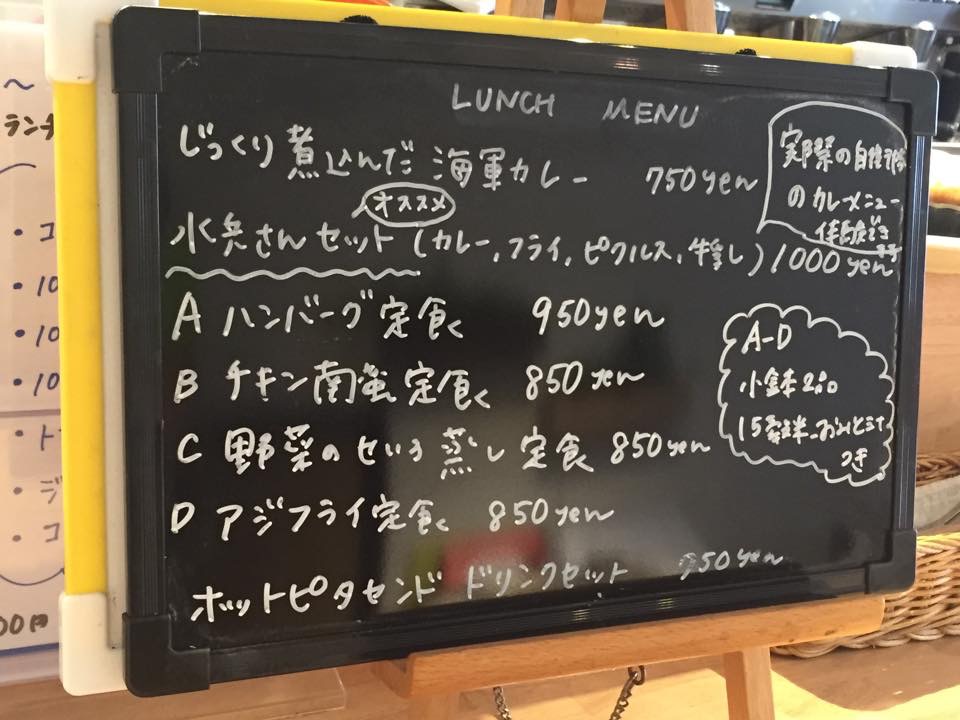 LUNCH MENU
じっくり煮込んだ 海軍カレー 750yen
実際の自衛隊
のカレーメニュー
体験でき
ます
オススメ
水兵さんセット (カレー,フライ,ピクルス,牛乳) 1000yen
A ハンバーグ定食 950yen
B チキン南蛮定食 850yen
C 野菜のせいろ蒸し定食 850yen
D アジフライ定食 850yen
ホットピタサンド ドリンクセット 50yen
A-D
小鉢2品
15穀米 おみそ汁
つき
ランチ
・コ
・10
・10
・10
・ト
・ジ
・コ
00円